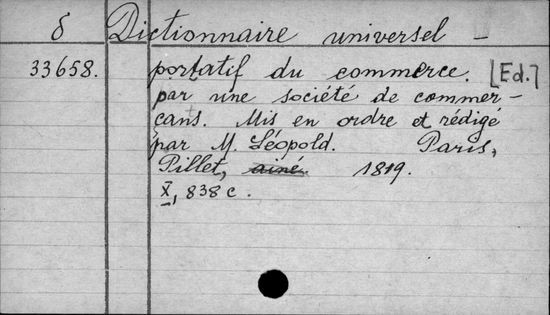 δ Dictionnaire universel -
33658. portatif du commerce. [Ed.]
par une société de commer-
çans. Mis en ordre et rédigé
par M. Léopold. Paris,
Pillet, ainé. 1819.
X, 838 c.